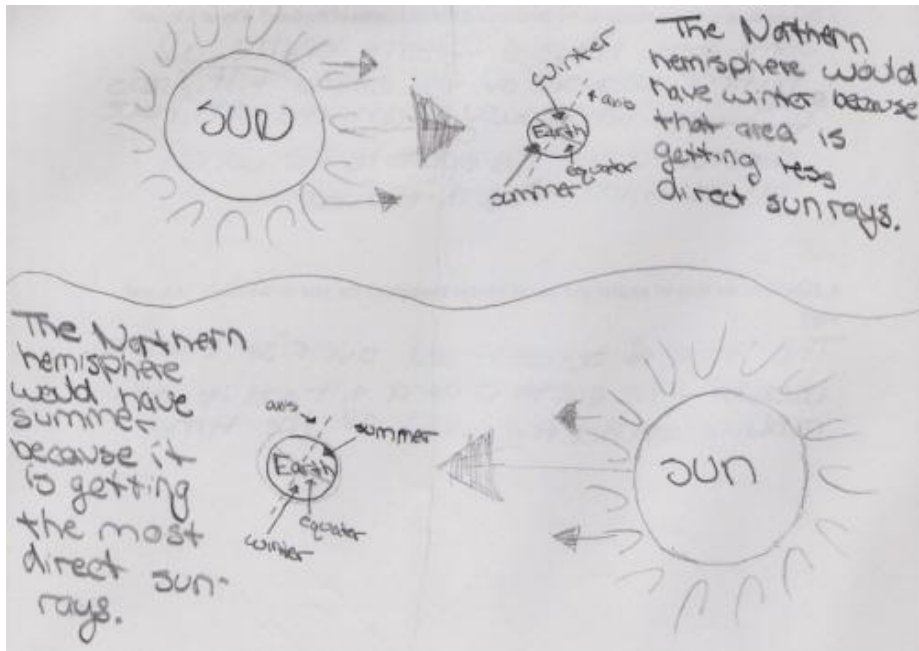 SUN
winter
axis
Earth
summer
equator
The Northern
hemisphere would
have winter because
that area is
getting less
direct sun rays.
The Northern
hemisphere
would have
summer
because it
is getting
the most
direct sun-
rays.
axis
summer
Earth
equator
winter
sun